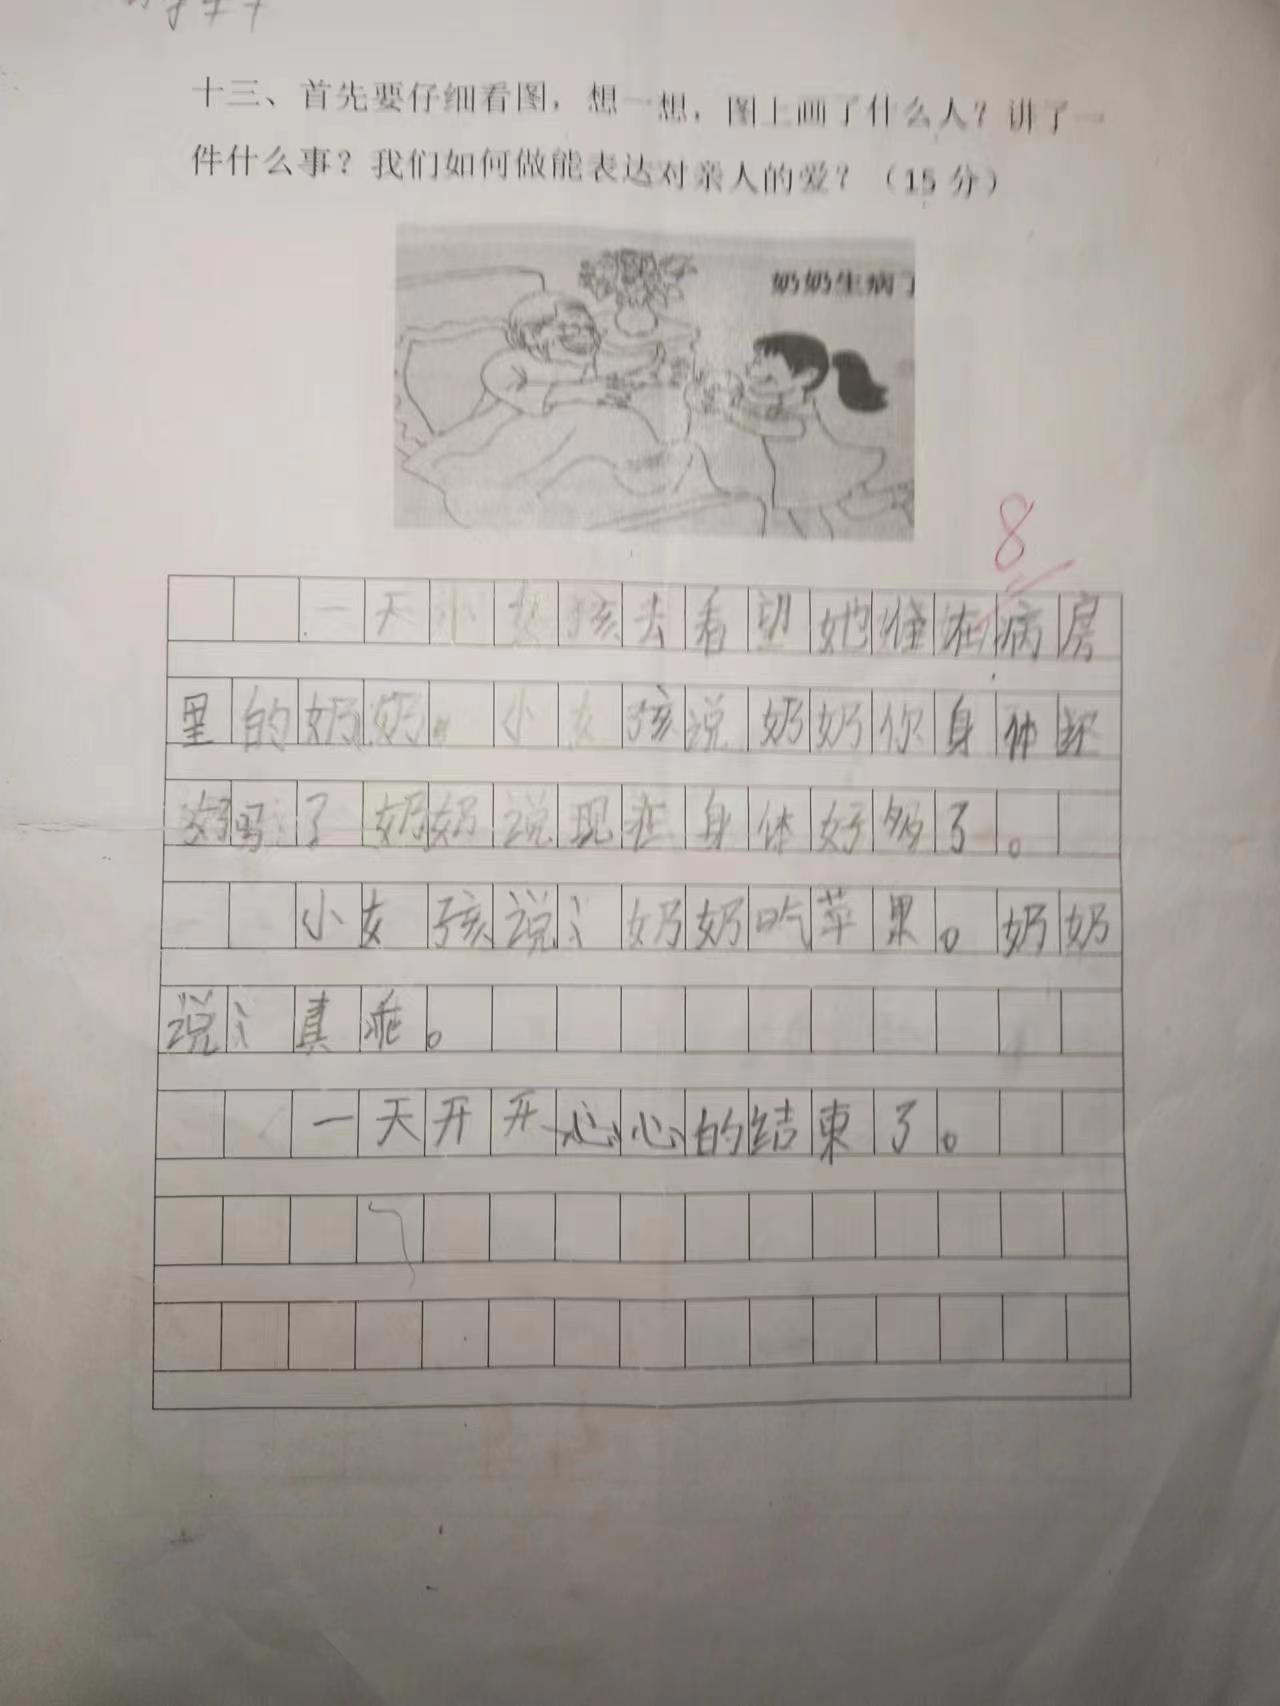 十三、首先要仔细看图，想一想，图上画了什么人？讲了一
件什么事？我们如何做能表达对亲人的爱？（15分）
奶奶生病了
8
一天小女孩去看望她住在病房
里的奶奶。小女孩说奶奶你身体还
好吗了奶奶说现在身体好多了。
小女孩说：奶奶吃苹果。奶奶
说：真乖。
一天开开心心的结束了。